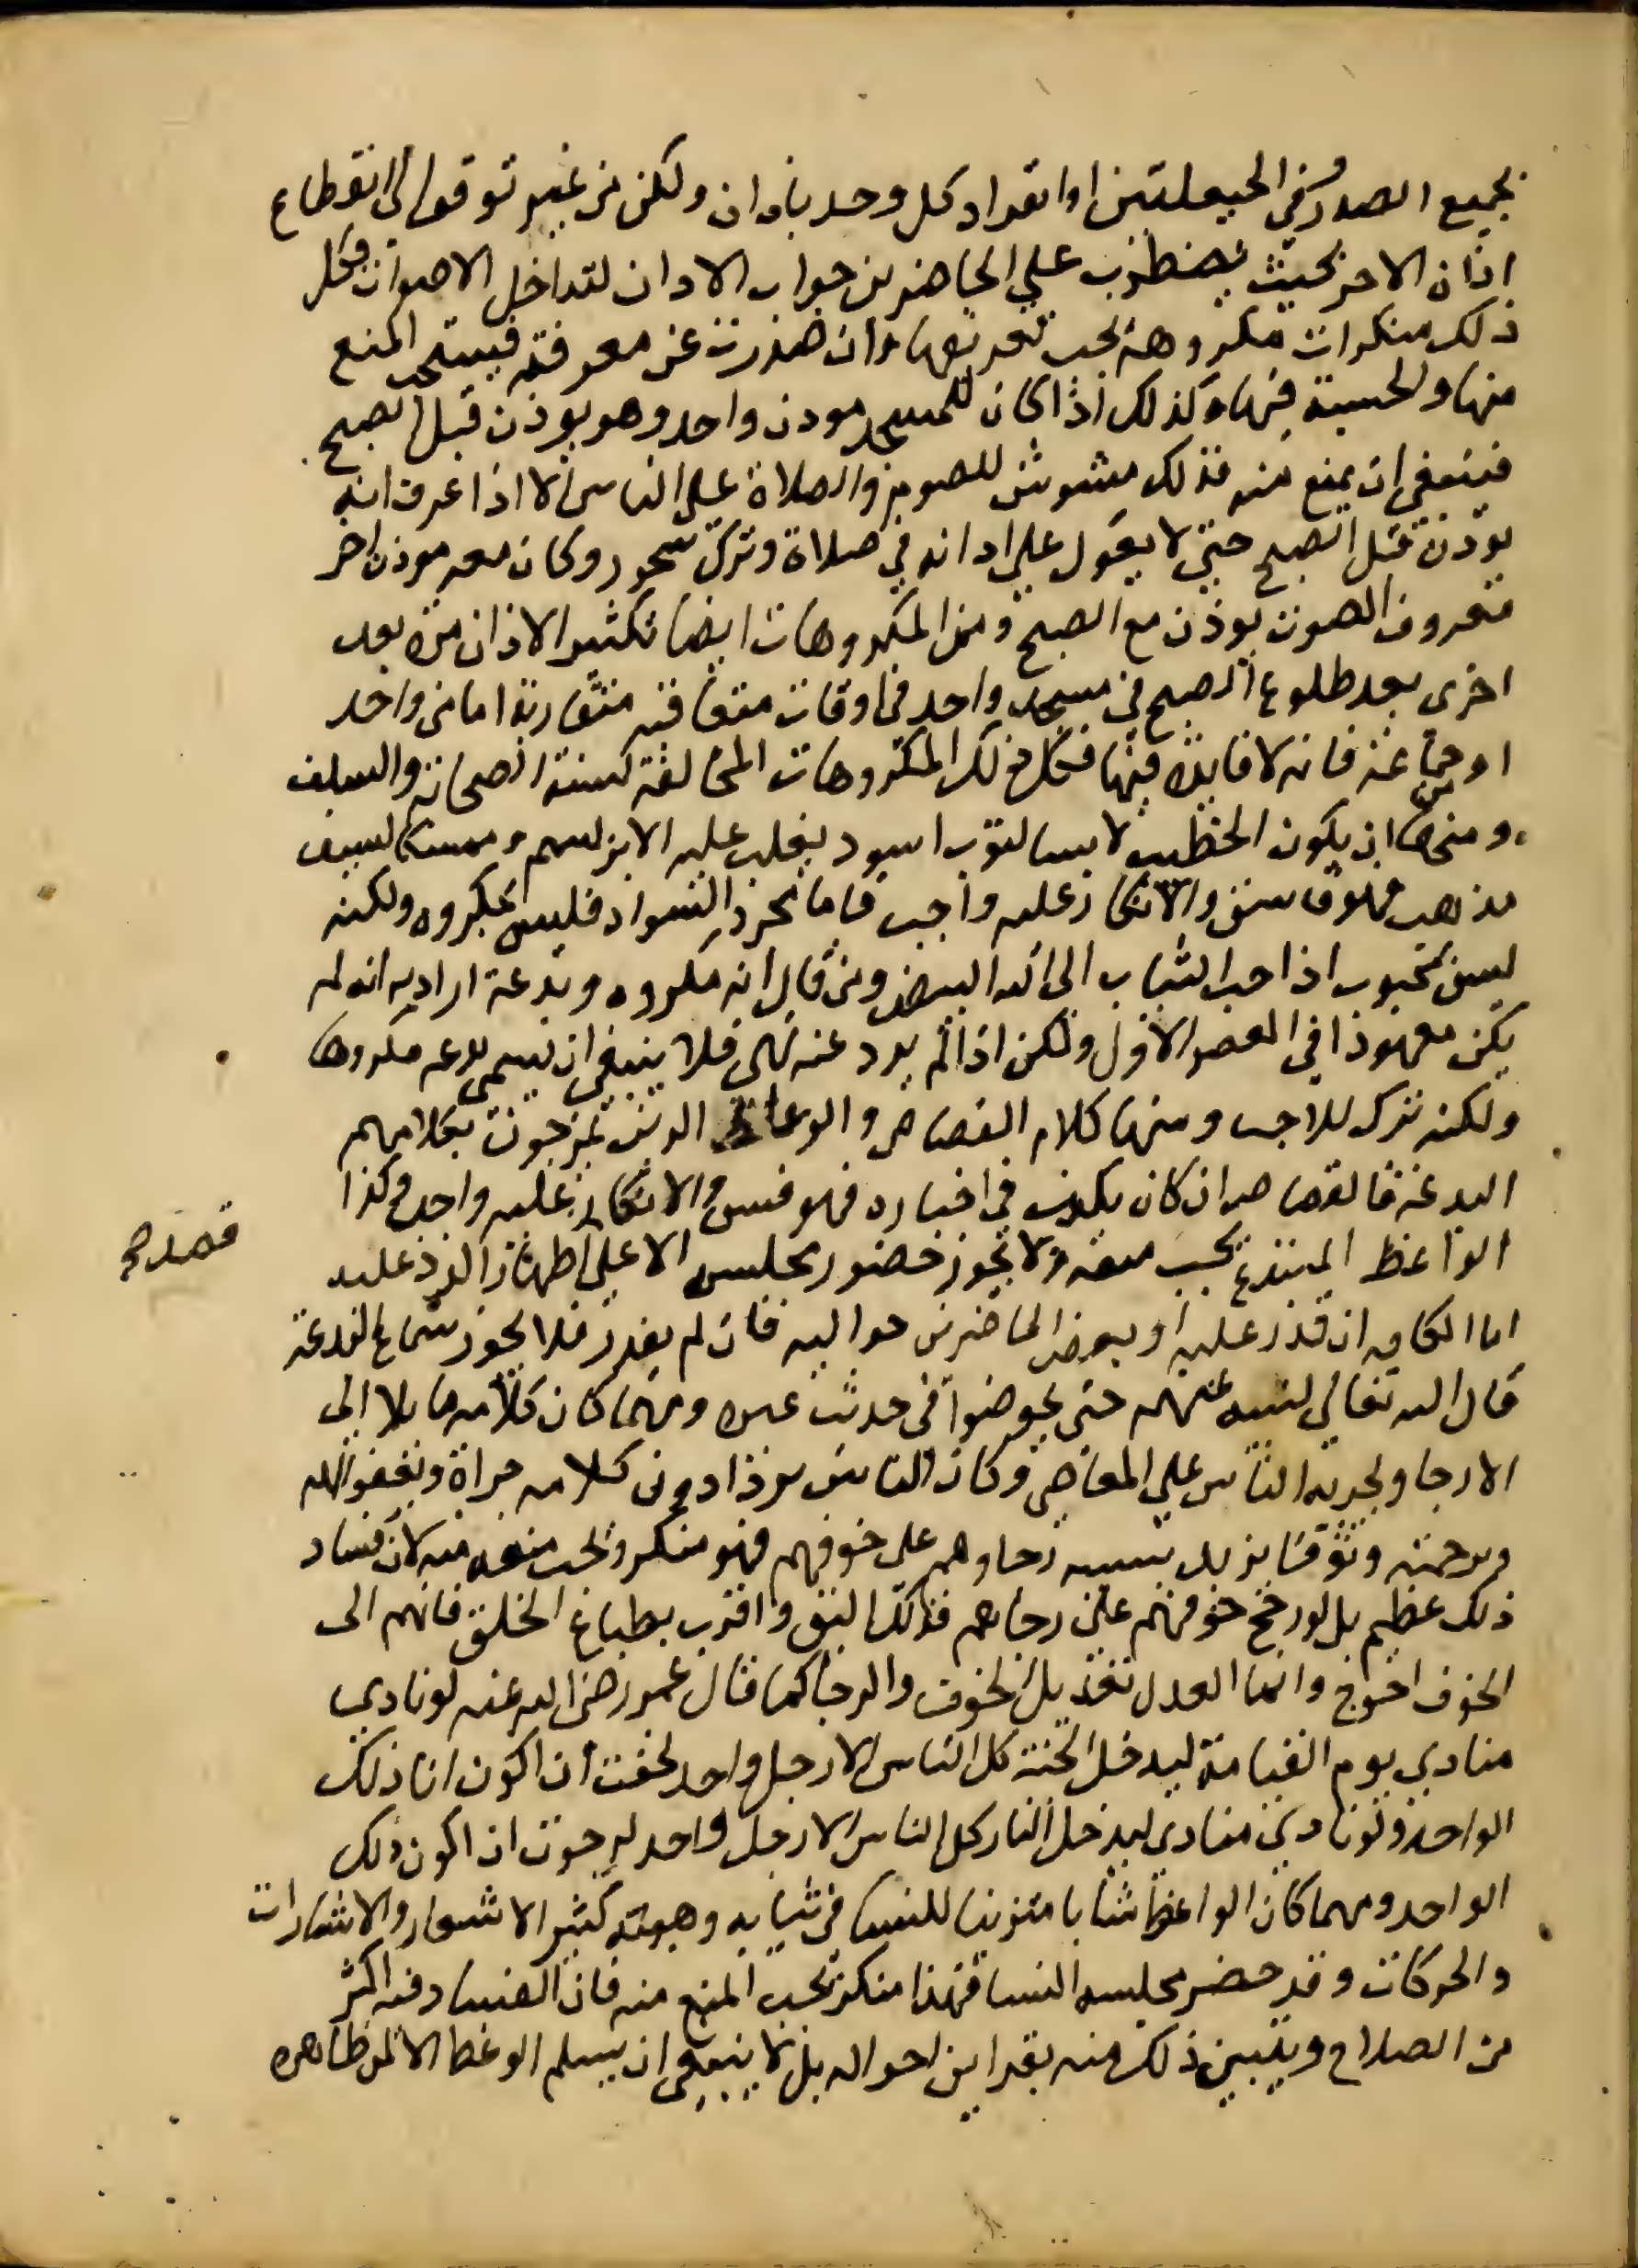 بجميع الصدر في الحيعلتين او انفراد كل وحد باذان ولكن من غير توقف الى انقطاع
اذان الاخر بحيث يضطرب على الحاضرين جواب الاذان لتداخل الاصوات فكل
ذلك منكرات مكروهة يجب تعريفها وان صدرت عن معرفة فيستحب المنع
منها والحسبة فيها وكذلك اذا كان للمسجد موذن واحد وهو يوذن قبل الصبح
فينبغي ان يمنع منه فذلك مشوش للصوم والصلاة على الناس الا اذا عرف انه
يوذن قبل الصبح حتى لا يعول على اذانه في صلاة وترك سحور وكان معه موذن اخر
معروف الصوت يوذن مع الصبح ومن المكروهات ايضا تكثير الاذان مرة بعد
اخرى بعد طلوع الصبح في مسجد واحد في اوقات متعاقبة متقاربة اما من واحد
او جماعة فانه لا فايدة فيها فكل ذلك من المكروهات المخالفة لسنة الصحابة والسلف
ومنها ان يكون الخطيب لابسا لثوب اسود يغلب عليه الابريسم او ممسكا لسيف
مذهب فهو فاسق والانكار عليه واجب فاما مجرد السواد فليس بمكروه ولكنه
ليس بمحبوب اذا حب الثياب الى الله البيض ومن قال انه مكروه وبدعة اراد به انه لم
يكن معهودا في العصر الاول ولكن اذا لم يرد عنه نهى فلا ينبغي ان يسمى بدعه مكروها
ولكنه ترك للاحب ومنها كلام القصاص والوعاظ الذين يمزجون بكلامهم
البدعة فالقصاص ان كان يكذب في اخباره فهو فسق والانكار عليه واجب وكذا
الواعظ المبتدع يجب منعه ولا يجوز حضور مجلسه الا على اظهار الرد عليه
قصده
اما الكافه ان قدر عليه او بعض الحاضرين حواليه فان لم يقدر فلا يجوز سماع البدعة
قال الله تعالى لنبيه عنهم حتى يخوضوا في حديث غيره ومهما كان كلامه مايلا الى
الارجا وتجرية الناس على المعاصي وكان الناس يزدادون كلامه جراة وبعفو الله
وبرحمته وثوقا يزيد بسببه رجاوهم على خوفهم فهو منكر ويجب منعه منه لان فساد
ذلك عظيم بل لو رجح خوفهم على رجاهم فذلك اليق واقرب بطباع الخلق فانهم الى
الخوف احوج وانما العدل تعديل الخوف والرجا كما قال عمر رضي الله عنه لو نادى
منادي يوم القيامة ليدخل الجنة كل الناس الا رجل واحد لخفت ان اكون انا ذلك
الواحد ولو نادى منادى ليدخل النار كل الناس الا رجل واحد لرجوت ان اكون ذلك
الواحد ومهما كان الواعظ شابا متزينا للنسا في ثيابه وهيئته كثير الاشعار والاشارات
والحركات وقد حضر مجلسه النسا فهذا منكر يجب المنع منه فان الفساد فيه اكثر
من الصلاح ويتبين ذلك منه بقراين احواله بل لا ينبغي ان يسلم الوعظ الا لمن ظاهره